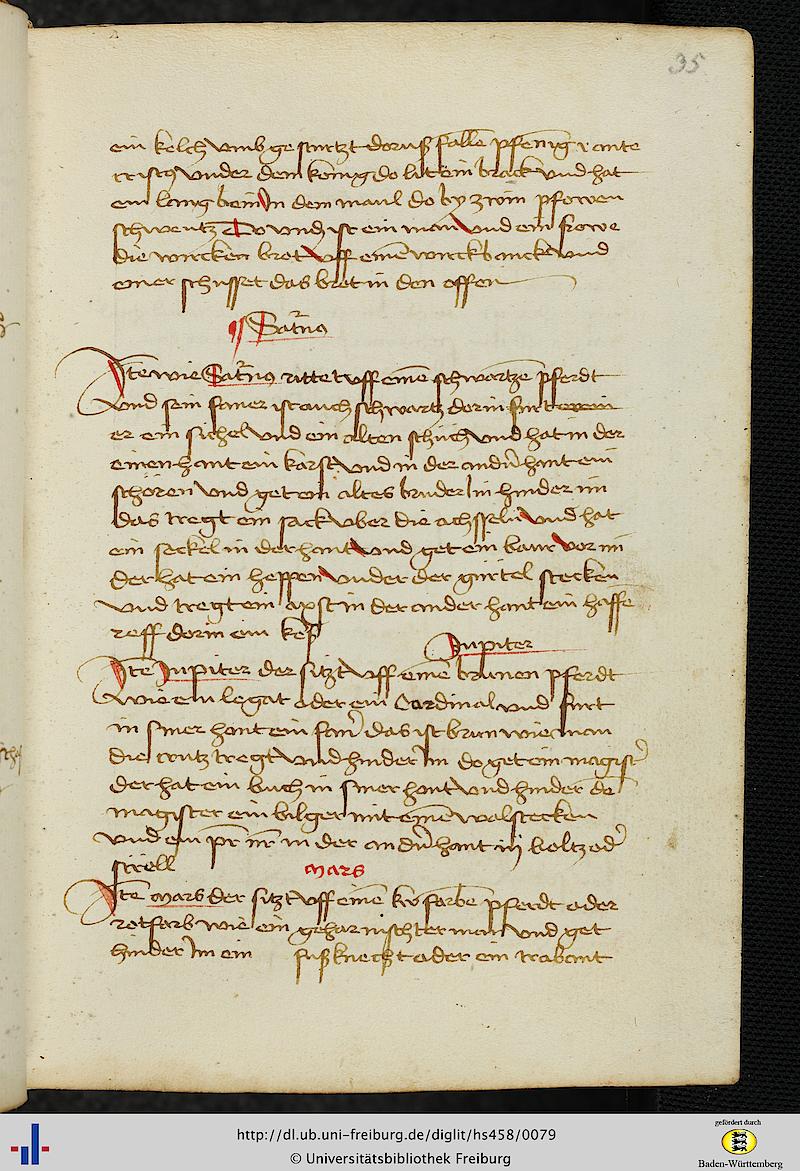 35
ein kelch vmb gesturtzt doruß fallē pfenig
vnder dem kenig do lit ein brack vnd hat
ein lang bein In dem maul do by zwin pfowen
schwentz Do vnd ist ein man vnd ein frowe
die wircken brot vff einē wirckbanck vnd
einer schusset das brot in den offen
Saťnꝰ
Jtē wie Saťnꝰ rittet vff einē schwartzē pferdt
vnd sein faner ist auch schwartz dor in furt
er ein sichel vnd ein alten schuch vnd hat in der
einen hant ein karst vnd in der andn̄ hant ein
schoren vnd get ein altes bruderlin hinder im
das tregt ein sack vber die achsseln vnd hat
ein seckel in der hant vnd get ein baur vor im
der hat ein heppen vnder der gürtel stecken
vnd tregt ein axst in der ander hant ein
reff dor in ein keß
Jupiter
Jtē Jupiter der sitzt vff einē brunen pferdt
wie ein legat oder ein Cardinal vnd furt
in siner hant ein fan̄ das ist brun wie man
die crutz tregt vnd hinder Im do get ein magist̄
der hat ein buch in siner hant vnd hinder dē
magister ein bilger mit einē walstecken
vnd ein pr nr in der andn̄ hant iij boltz od̄
strell
mars
Jtē mars der sitzt vff einē farbē pferdt oder
rotfarb wie ein geharnischter man vnd get
hinder Im ein fußknecht oder ein trabant
http://dl.ub.uni-freiburg.de/diglit/hs458/0079
© Universitätsbibliothek Freiburg
gefördert durch
Baden-Württemberg